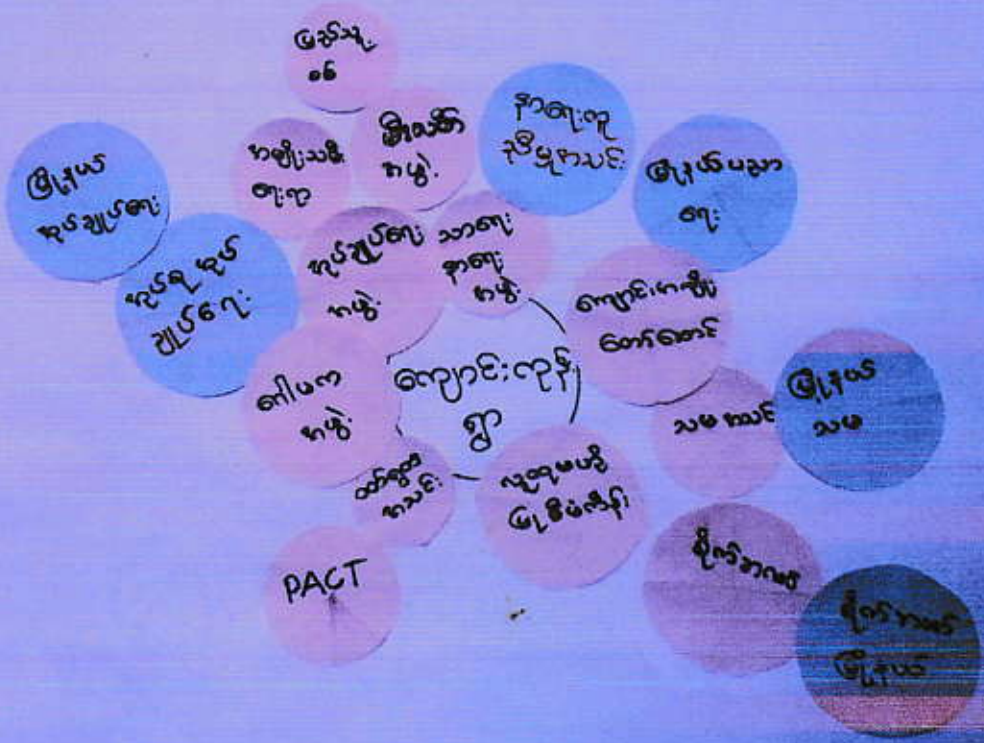 ပြည်သူ့
စစ်
မီးသတ်
အဖွဲ့
အမျိုးသမီး
ရေးရာ
နာရေးကူ
ညီမှုအသင်း
မြို့နယ်ပညာ
ရေး
မြို့နယ်
အုပ်ချုပ်ရေး
အုပ်စု အုပ်
ချုပ်ရေး
အုပ်ချုပ်ရေး
အဖွဲ့
သာရေး
နာရေး
အဖွဲ့
ကျောင်းအကျိုး
တော်ဆောင်
ဂေါပက
အဖွဲ့
ကျောင်းကုန်း
ရွာ
သမ အသင်း
မြို့နယ်
သမ
အသင်း
လူထုဗဟို
ပြု စီမံကိန်း
PACT
မြို့နယ်